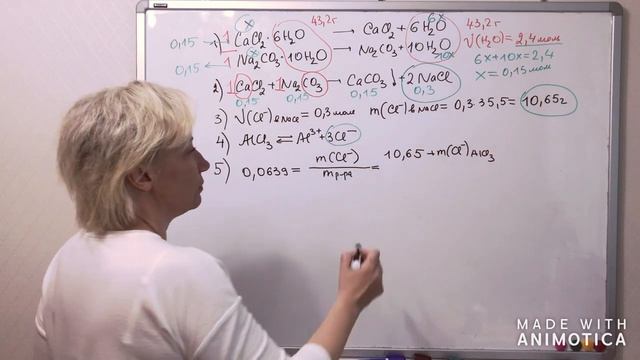 43,2г 6x 43,2г
0,15 1) 1 CaCl₂·6H₂O → CaCl₂ + 6H₂O ν(H₂O) = 2,4 моль
x
0,15 ← 1 Na₂CO₃·10H₂O → Na₂CO₃ + 10H₂O 6x+10x=2,4
10x x = 0,15 моль
2) 1CaCl₂ + 1Na₂CO₃ → CaCO₃↓ + 2NaCl
0,15 0,15 0,15 0,3
3) ν(Cl⁻) в NaCl = 0,3 моль m(Cl⁻) в NaCl = 0,3·35,5 = 10,65г
4) AlCl₃ ⇄ Al³⁺ + 3Cl⁻
5) 0,0639 = m(Cl⁻) / m р-ра = 10,65 + m(Cl⁻) AlCl₃
MADE WITH
ANIMOTICA